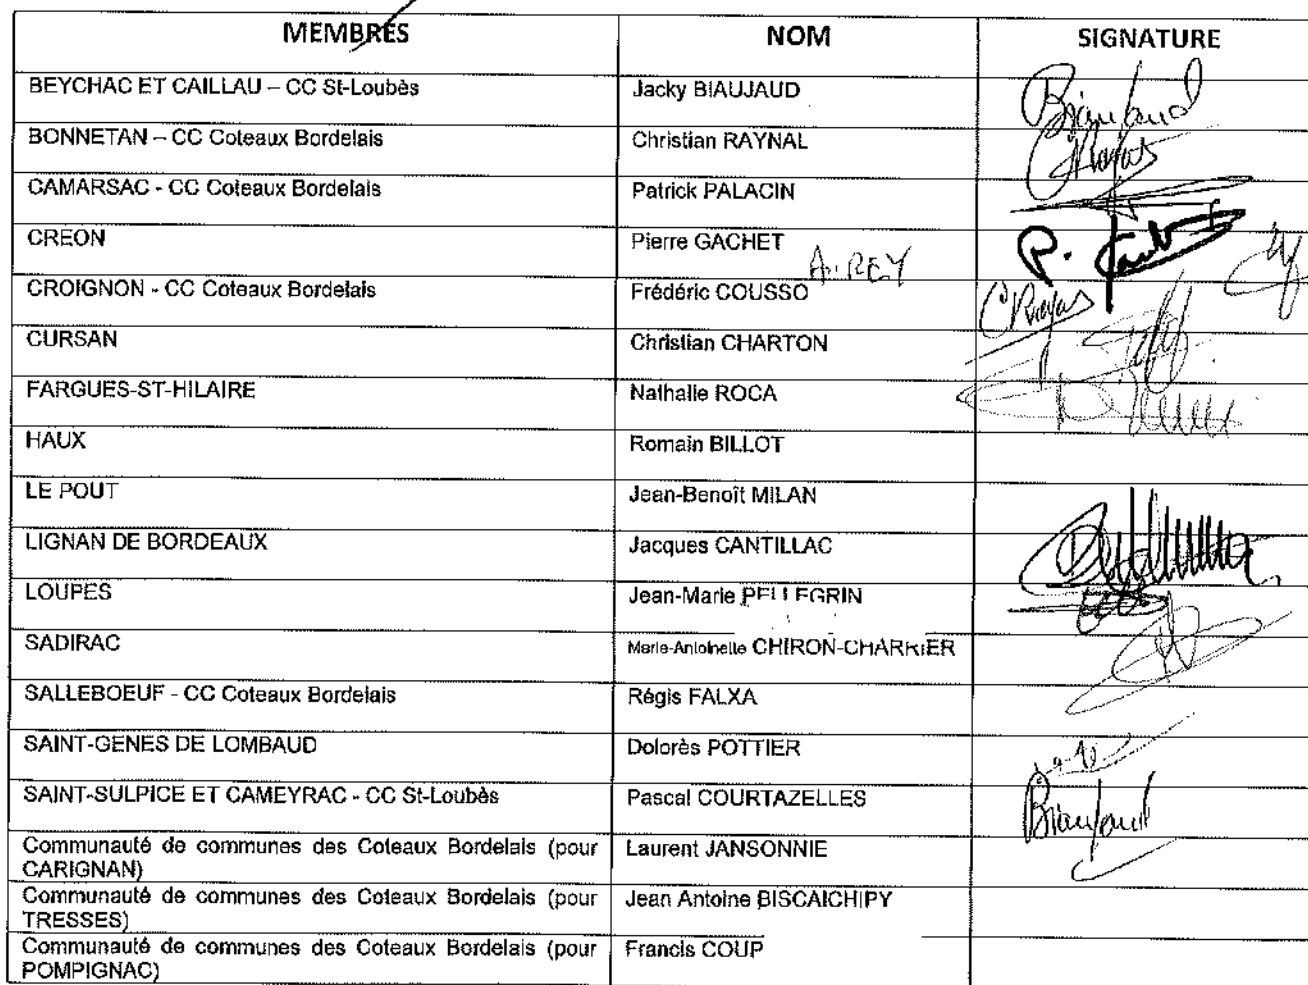 MEMBRES NOM SIGNATURE
BEYCHAC ET CAILLAU – CC St-Loubès Jacky BIAUJAUD Biaujaud
BONNETAN – CC Coteaux Bordelais Christian RAYNAL
CAMARSAC - CC Coteaux Bordelais Patrick PALACIN
CREON Pierre GACHET P.
A. REY
CROIGNON - CC Coteaux Bordelais Frédéric COUSSO
CURSAN Christian CHARTON
FARGUES-ST-HILAIRE Nathalie ROCA
HAUX Romain BILLOT
LE POUT Jean-Benoît MILAN
LIGNAN DE BORDEAUX Jacques CANTILLAC
LOUPES Jean-Marie PELLEGRIN
SADIRAC Marie-Antoinette CHIRON-CHARRIER
SALLEBOEUF - CC Coteaux Bordelais Régis FALXA
SAINT-GENES DE LOMBAUD Dolorès POTTIER
SAINT-SULPICE ET CAMEYRAC - CC St-Loubès Pascal COURTAZELLES Biaujaud
Communauté de communes des Coteaux Bordelais (pour Laurent JANSONNIE
CARIGNAN)
Communauté de communes des Coteaux Bordelais (pour Jean Antoine BISCAICHIPY
TRESSES)
Communauté de communes des Coteaux Bordelais (pour Francis COUP
POMPIGNAC)